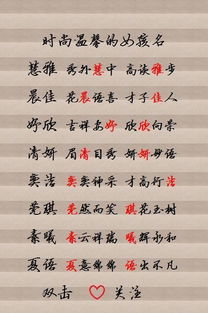 时尚温馨的女孩名
慧雅 秀外慧中 高谈雅步
晨佳 花晨语喜 才子佳人
妤欣 吉祥安妤 欣欣向荣
清妍 眉清目秀 妍妍妙语
窦洁 窦窦神采 才高行洁
莞琪 莞然而笑 琪花玉树
素曦 素云祥瑞 曦晖永和
夏语 夏意绵绵 语出不凡
双击 关注